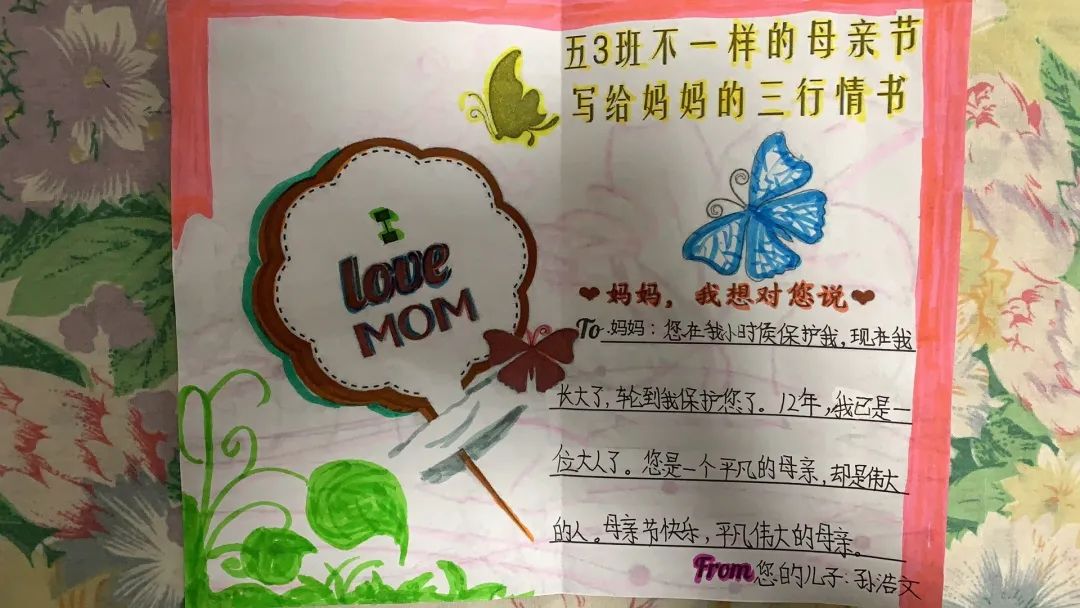 I
love
MOM
五3班不一样的母亲节
写给妈妈的三行情书
❤妈妈，我想对您说❤
To 妈妈：您在我小时侯保护我，现在我
长大了，轮到我保护您了。12年，我已是一
位大人了。您是一个平凡的母亲，却是伟大
的人。母亲节快乐，平凡伟大的母亲。
From 您的儿子：孙浩文